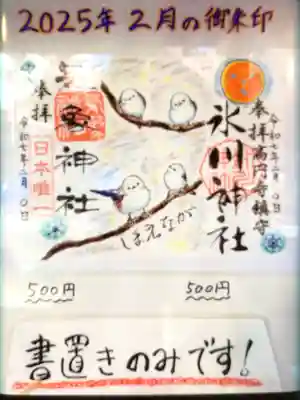 2025年 2月の御朱印
奉拝 高円寺鎮守
令和七年二月〇日
氷川神社
しまえなが
気象神社
奉拝
日本唯一
令和七年二月〇日
500円
500円
書置きのみです!